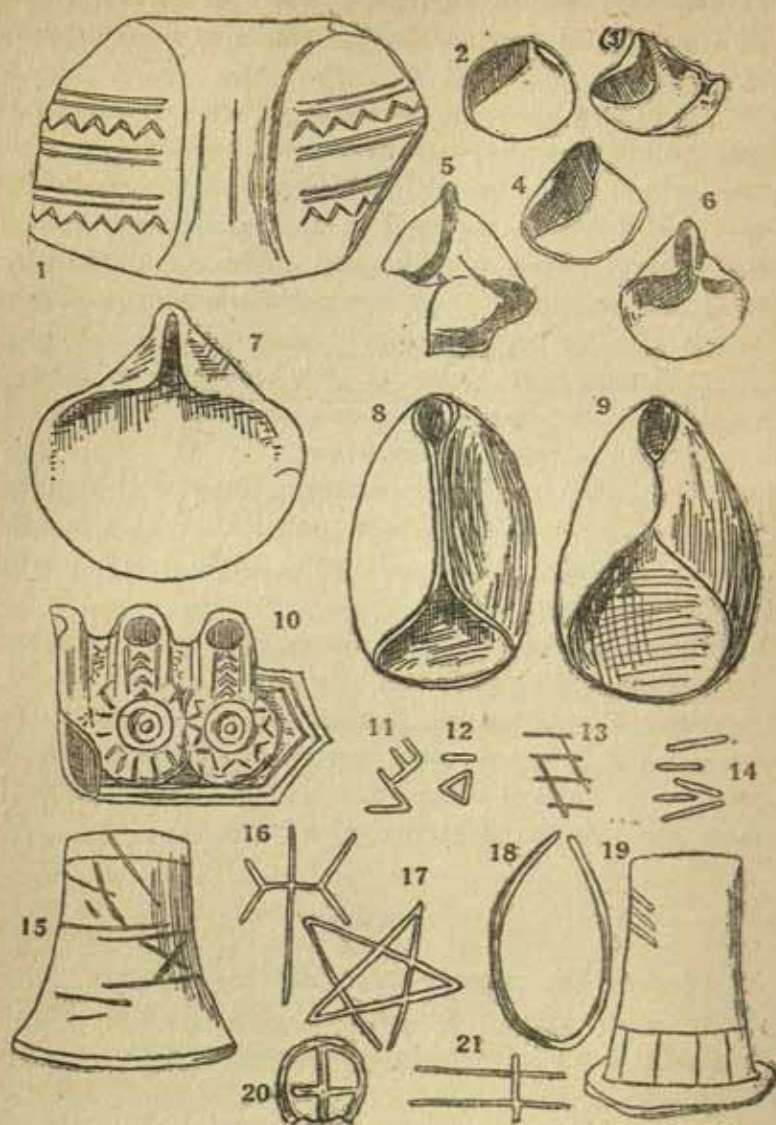 2 (3)
5 4 6
1
7
8 9
10
11 12 13 14
16
15 17 18 19
20 21